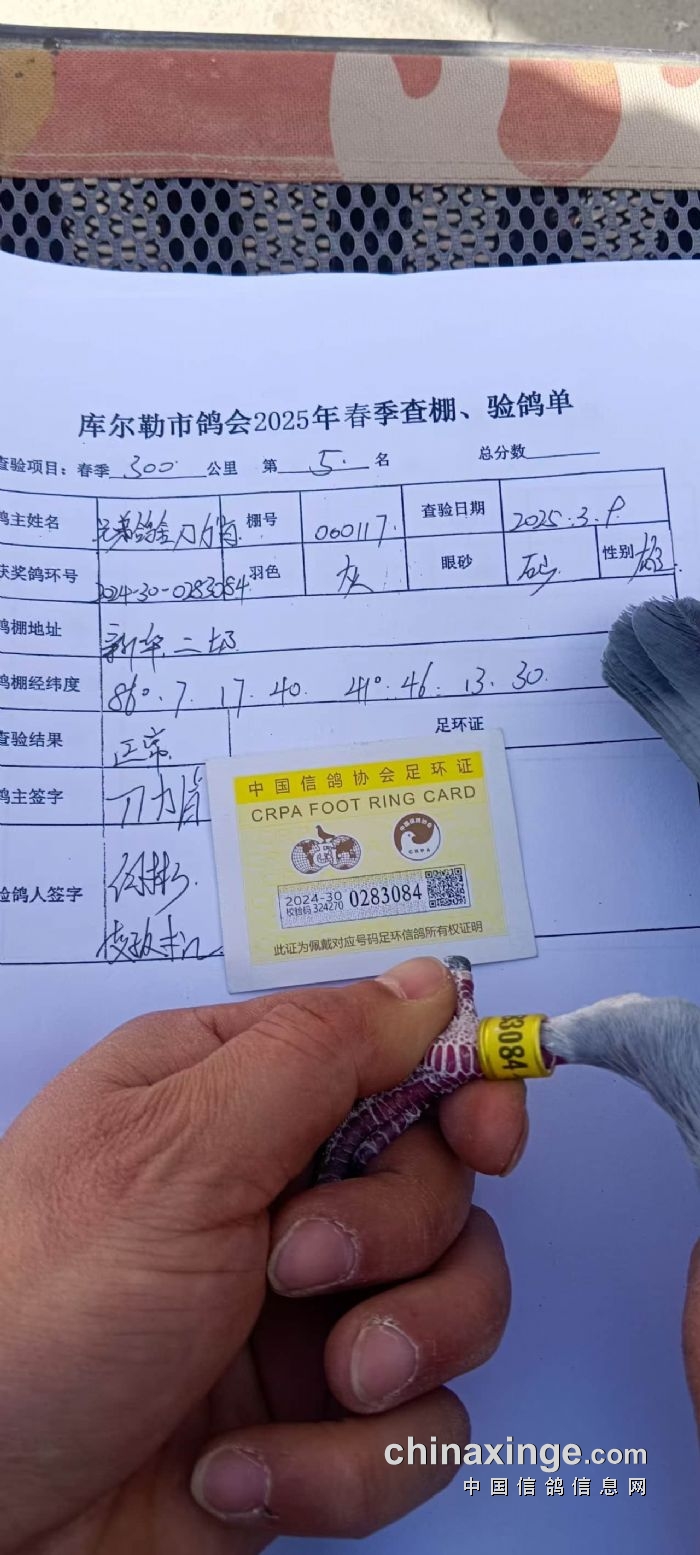 库尔勒市鸽会2025年春季查棚、验鸽单
查验项目：春季 300 公里 第 5 名 总分数
鸽主姓名 兄弟鸽舍刀力肖 棚号 060117 查验日期 2025.3.9
获奖鸽环号 2024-30-0283084 羽色 灰 眼砂 砂 性别 雄
鸽棚地址 新华二场
鸽棚经纬度 86°.7.17.40. 41°.46.13.30.
查验结果 正常 足环证
鸽主签字
验鸽人签字
中国信鸽协会足环证
CRPA FOOT RING CARD
中国信鸽协会
CRPA
2024-30 0283084
校验码 324270
此证为佩戴对应号码足环信鸽所有权证明
83084
chinaxinge.com
中国信鸽信息网